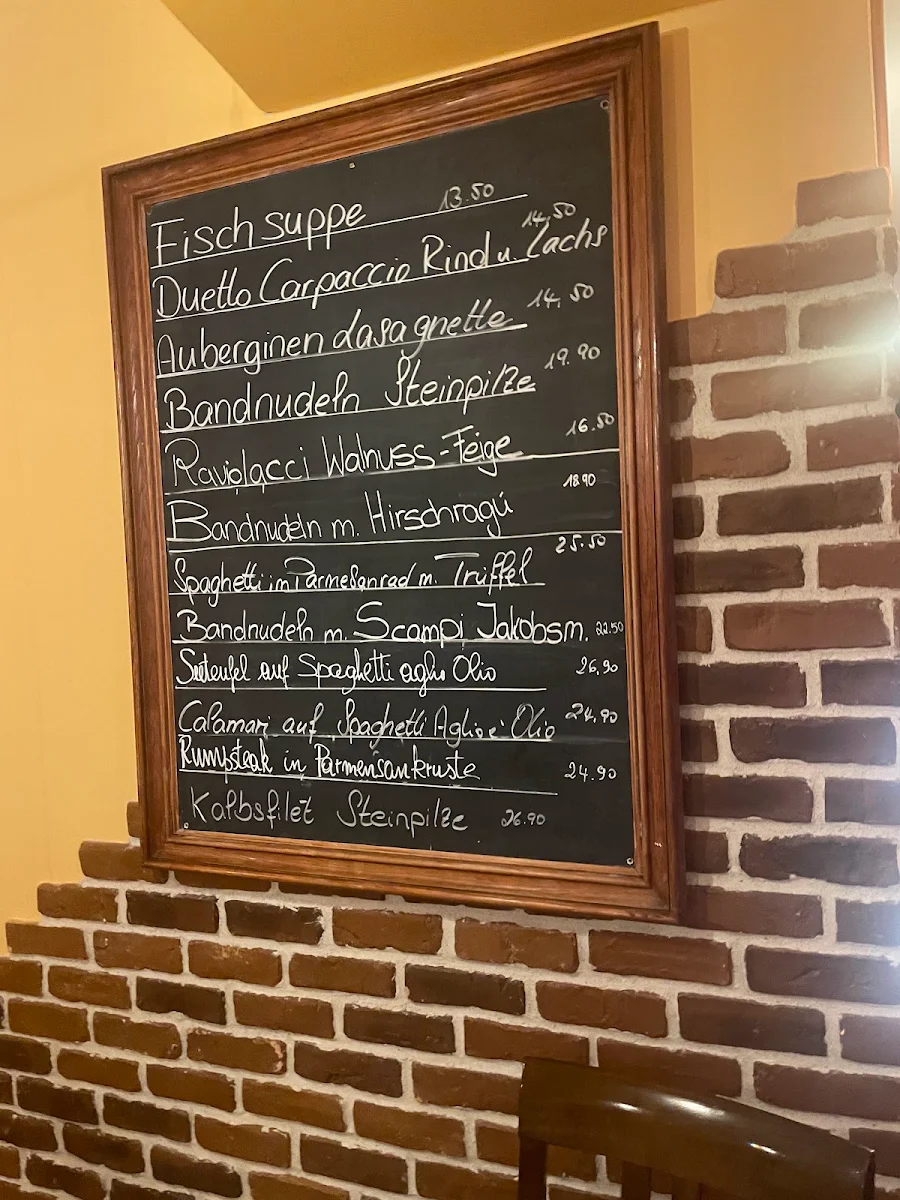 Fischsuppe 13.50
Duetto Carpaccio Rind u. Lachs 14,50
Auberginen Lasagnette 14,50
Bandnudeln Steinpilze 19.90
Raviolacci Walnuss-Feige 16.50
Bandnudeln m. Hirschragú 18.90
Spaghetti im Parmesanrad m. Trüffel 25.50
Bandnudeln m. Scampi Jakobsm. 22.50
Seeteufel auf Spaghetti aglio Olio 26,90
Calamari auf Spaghetti Aglio e Olio 24,90
Rumpsteak in Parmensankruste 24.90
Kalbsfilet Steinpilze 26.90